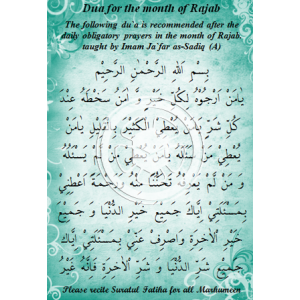 Dua for the month of Rajab
The following du'a is recommended after the
daily obligatory prayers in the month of Rajab,
taught by Imam Ja'far as-Sadiq (A)
بِسْمِ اللهِ الرَّحْمٰنِ الرَّحِيْمِ
يَامَنْ اَرْجُوْهُ لِكُلِّ خَيْرٍ وَّ اٰمَنُ سَخَطَهُ عِنْدَ
كُلِّ شَرٍّ يَامَنْ يُعْطِيْ الْكَثِيْرَ بِالْقَلِيْلِ يَامَنْ
يُعْطِيْ مَنْ سَئَلَهُ يَامَنْ يُعْطِيْ مَنْ لَمْ يَسْئَلْهُ
وَ مَنْ لَمْ يَعْرِفْهُ تَحَنُّنًا مِنْهُ وَ رَحْمَةً اَعْطِنِيْ
بِمَسْئَلَتِيْ اِيَّاكَ جَمِيْعَ خَيْرِ الدُّنْيَا وَ جَمِيْعَ
خَيْرِ الْاٰخِرَةِ وَ اصْرِفْ عَنِّيْ بِمَسْئَلَتِيْ اِيَّاكَ
جَمِيْعَ شَرِّ الدُّنْيَا وَ شَرِّ الْاٰخِرَةِ فَاِنَّهُ غَيْرُ
Please recite Suratul Fatiha for all Marhumeen